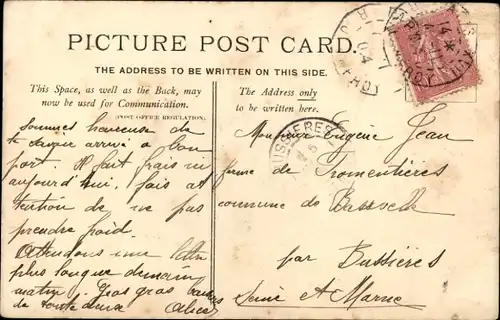 PICTURE POST CARD.
THE ADDRESS TO BE WRITTEN ON THIS SIDE.
This Space, as well as the Back, may
now be used for Communication.
(POST OFFICE REGULATION)
Sommes heureuse de
te savoir arrivé à bon
port. Il fait frais ici
aujourd'hui, fais at
tention de ne pas
prendre froid.
Attendons une lettre
plus longue demain
matin. Gros gros baisers
de toute deux Alice
The Address only
to be written here.
Monsieur Eugène Jean
ferme de Fromentières
commune de Bassevelle
par Bussières
Seine et Marne
BUSSIERES
04